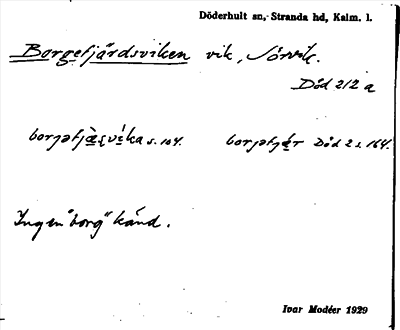 Döderhult sn, Stranda hd, Kalm. l.
Borgefjärdsviken vik, Sörvik.
Död 212 a
borjəfjæ̀ṣvíka s. 104. borjəfjǽr Död 2 s. 164.
Ingen "borg" känd.
Ivar Modéer 1929